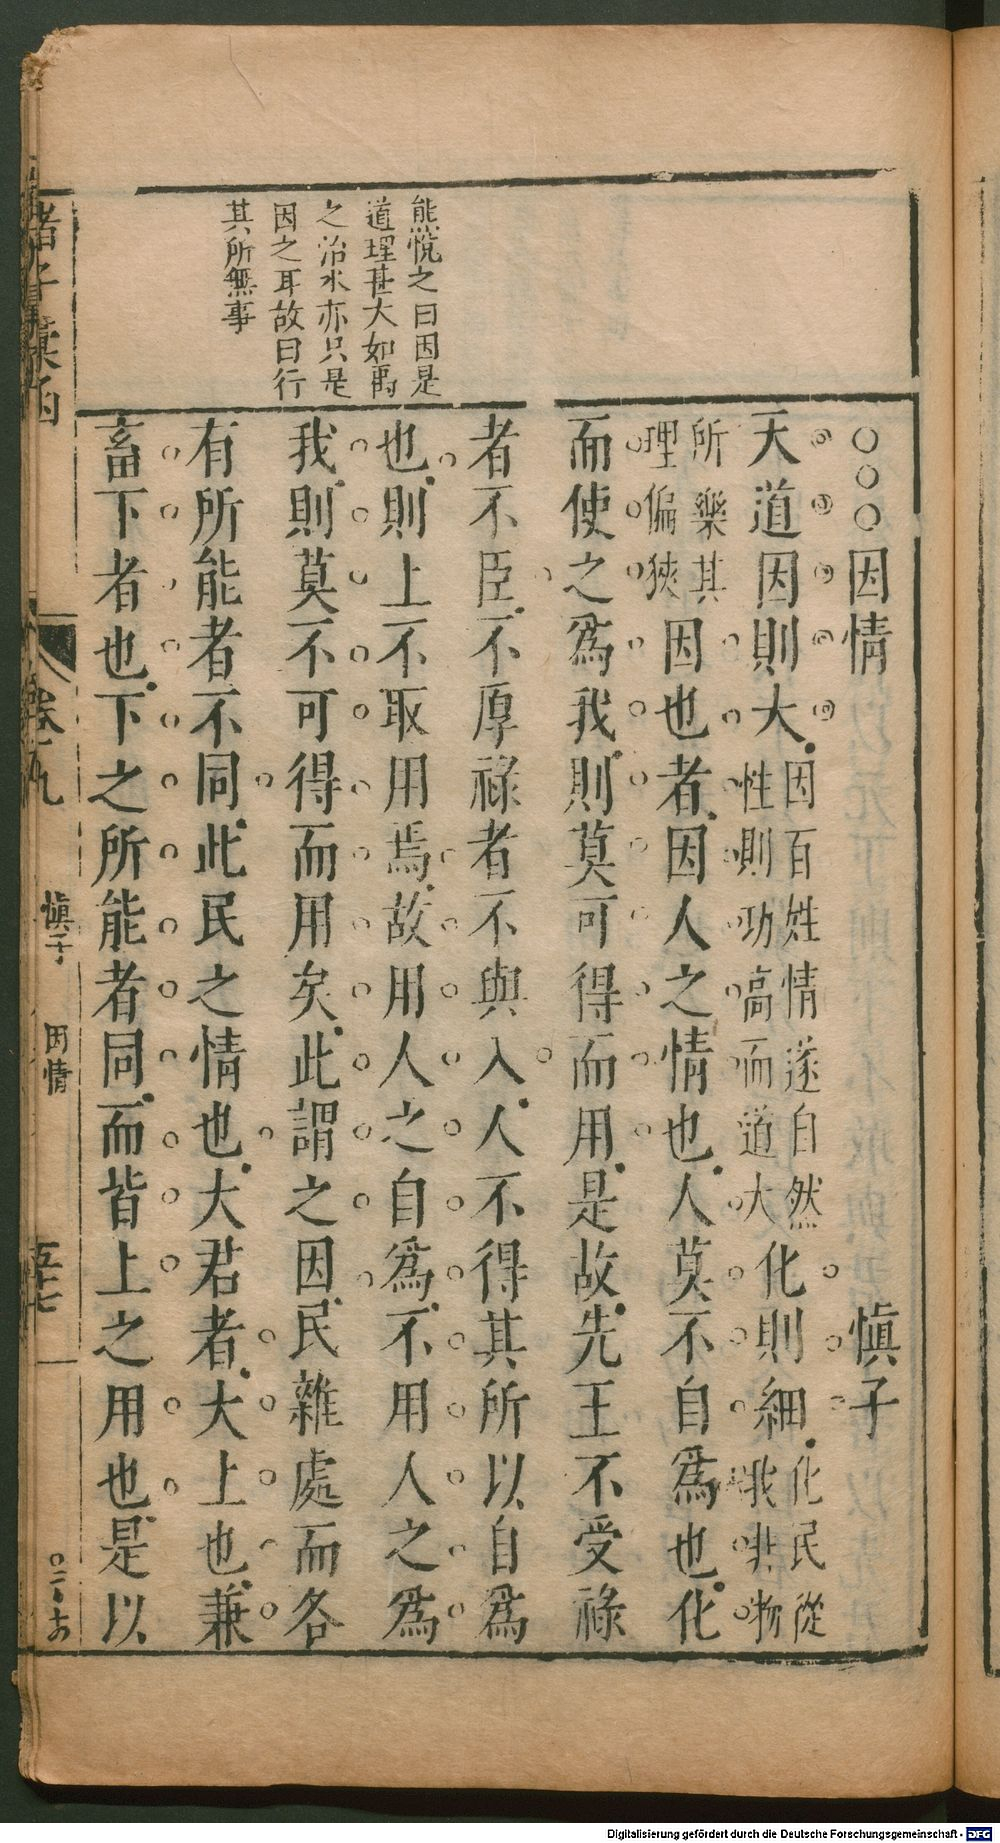 熊悅之曰因是
道理甚大如禹
之治水亦只是
因之耳故曰行
其所無事
○○○因情 慎子
天道因則大因百姓情遂自然性則功高而道大化則細化民從我非物
所樂其理偏狹因也者因人之情也人莫不自為也化
而使之為我則莫可得而用是故先王不受祿
者不臣不厚祿者不與入人不得其所以自為
也則上不取用焉故用人之自為不用人之為
我則莫不可得而用矣此謂之因民雜處而各
有所能者不同此民之情也大君者大上也兼
畜下者也下之所能者同而皆上之用也是以
諸子彙函 卷 九 慎子 因情 五七
Digitalisierung gefördert durch die Deutsche Forschungsgemeinschaft - DFG